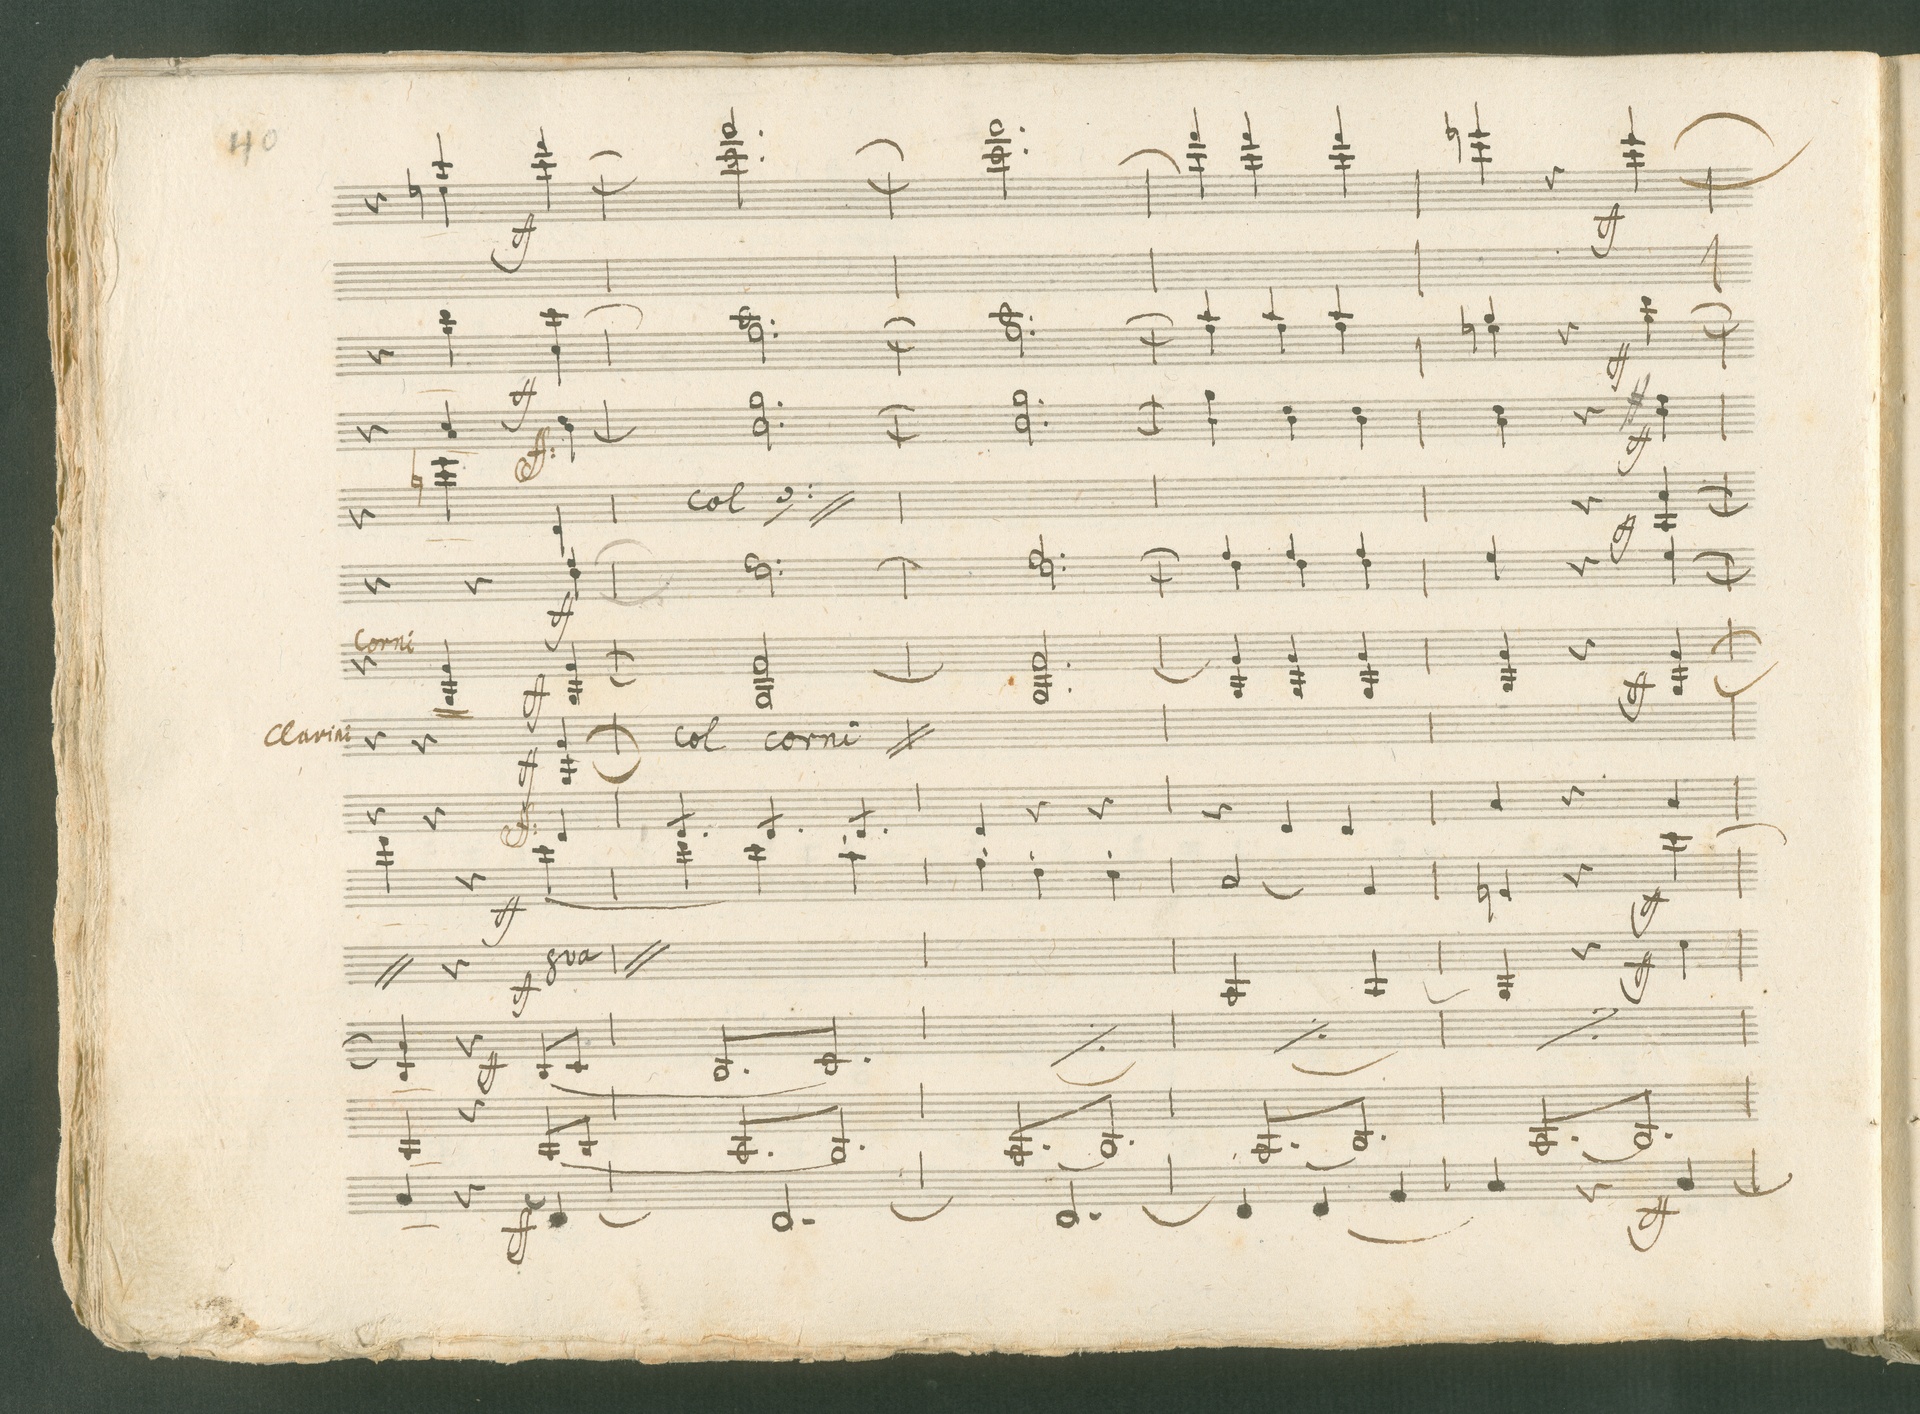 40
ff ff
ff ff
ff ff
col 9: //
ff
ff
Corni
ff ff
Clarini ff col corni //
ff
ff ff
// ff 8va // ff
ff
ff ff